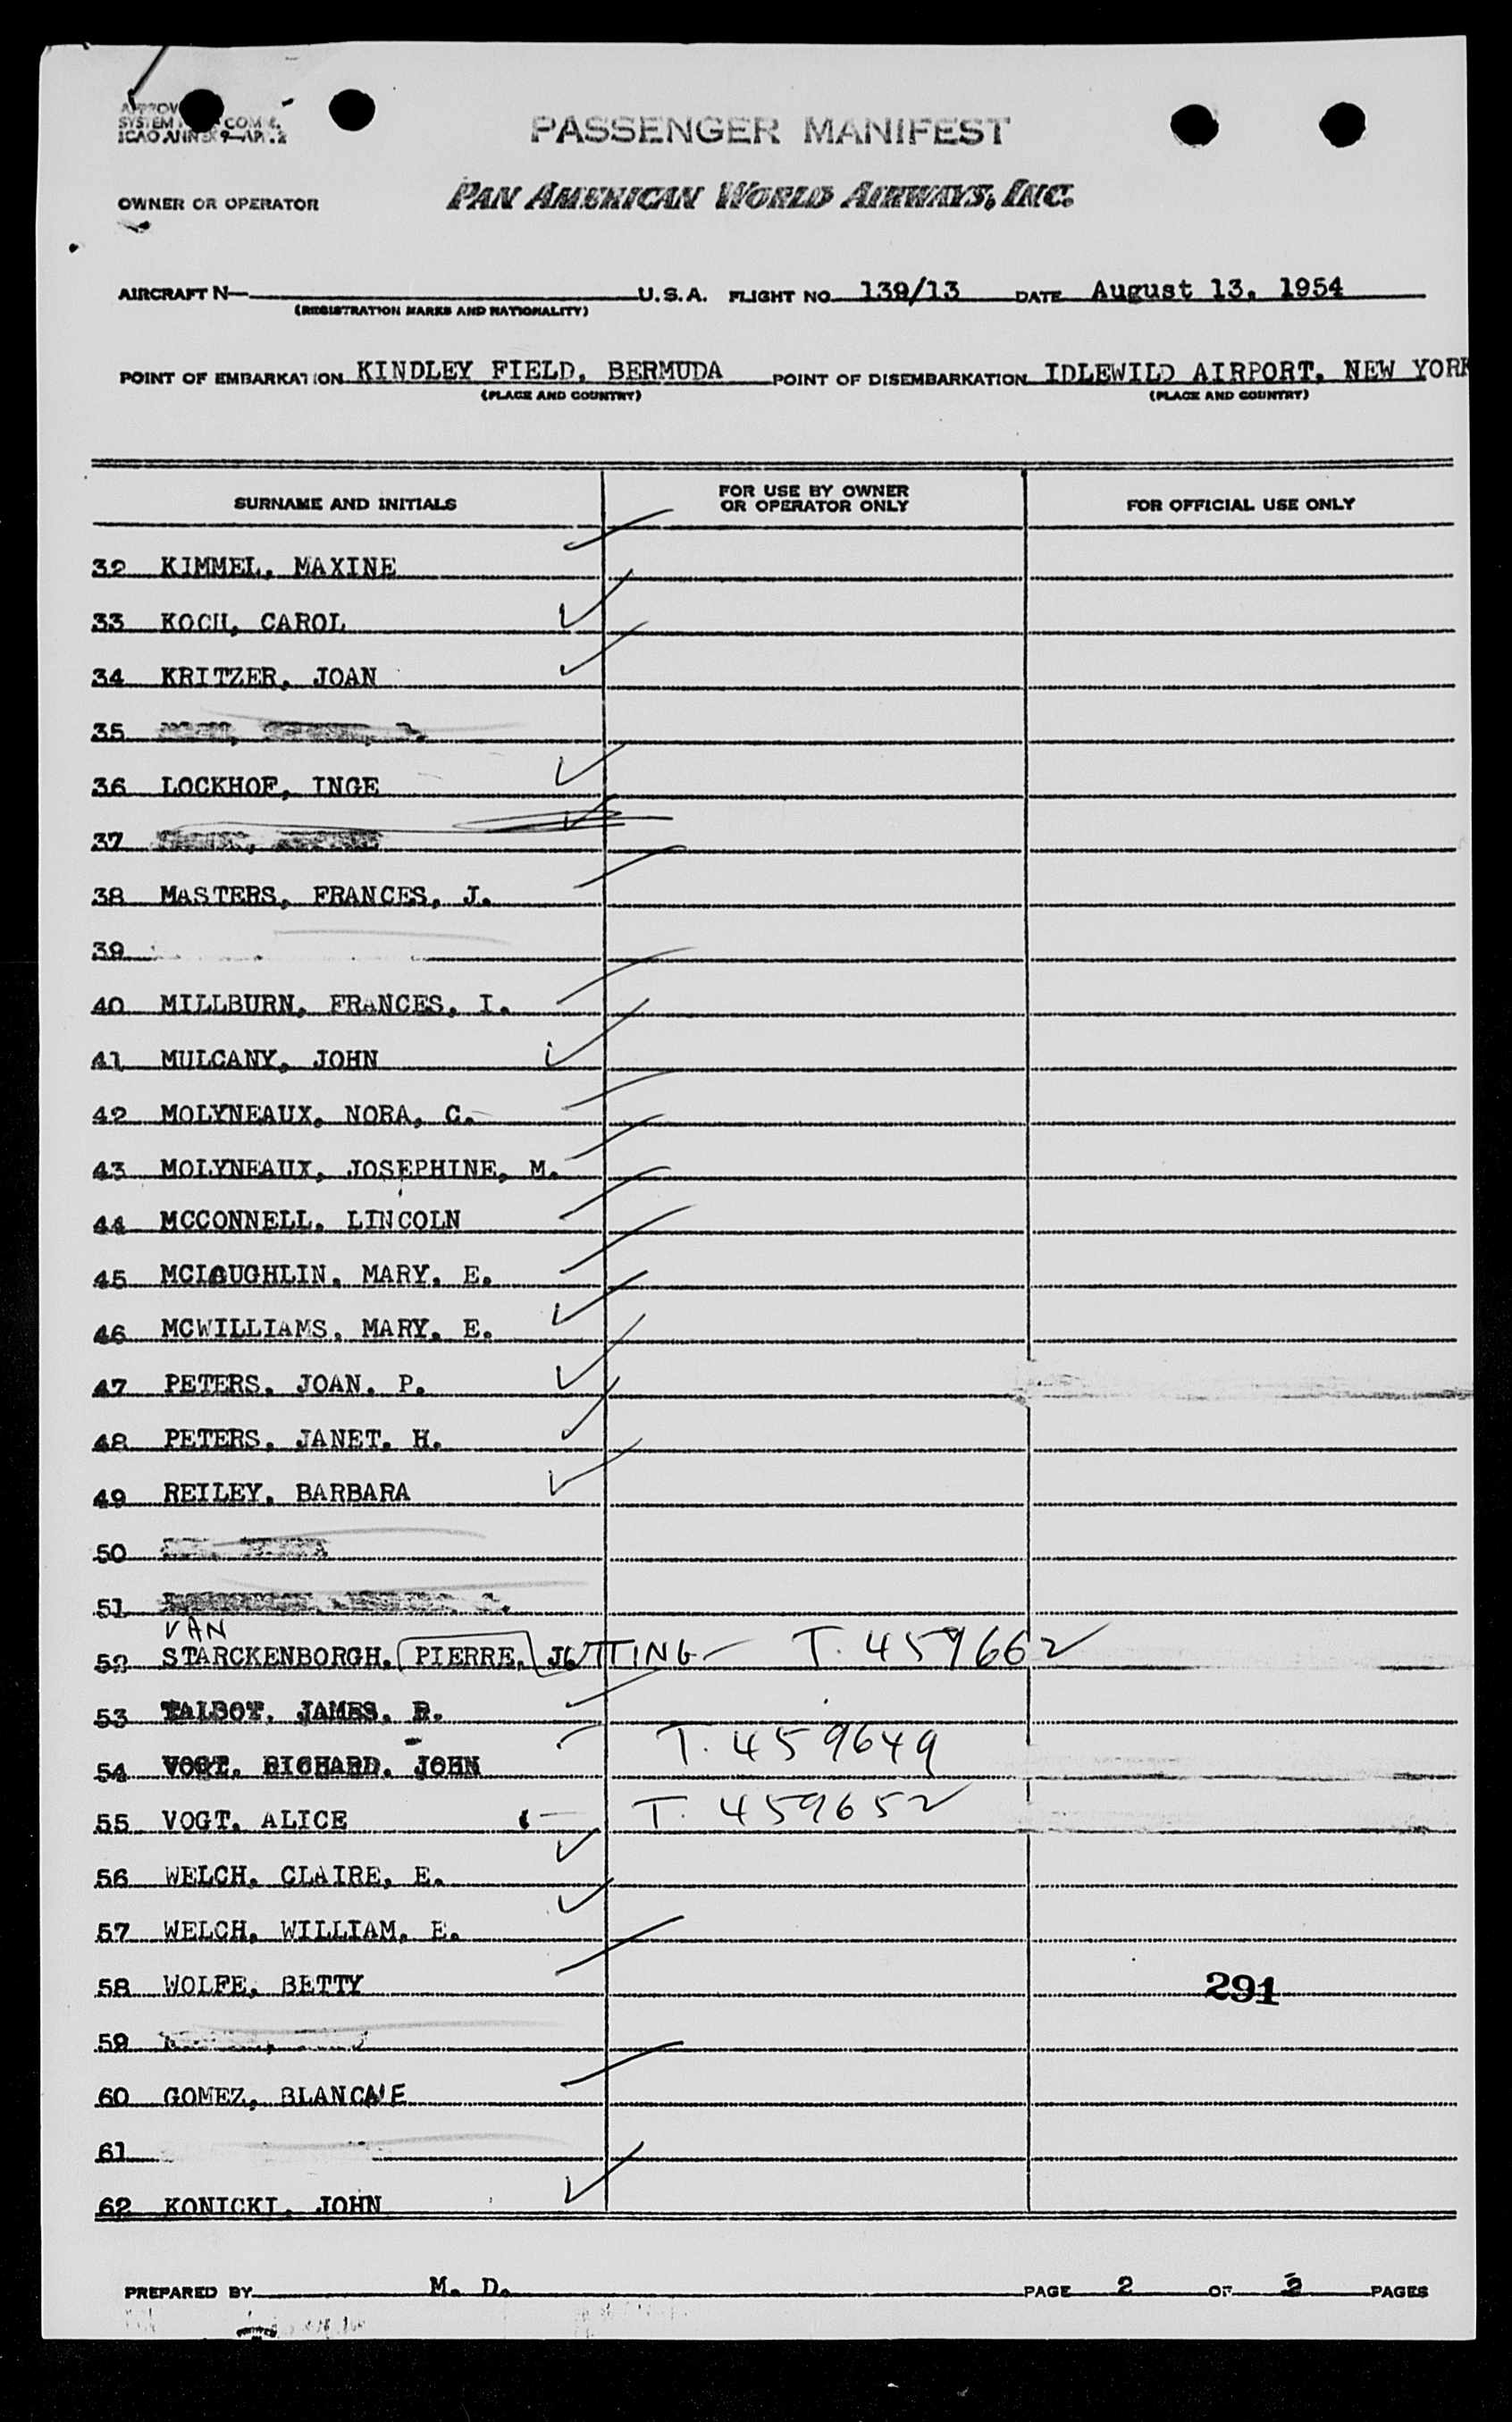 PASSENGER MANIFEST
SYSTEM COM
ICAO ANNEX 9—AP. 2
OWNER OR OPERATOR PAN AMERICAN WORLD AIRWAYS, INC.
AIRCRAFT N— U.S.A. FLIGHT NO. 139/13 DATE August 13, 1954
(REGISTRATION MARKS AND NATIONALITY)
POINT OF EMBARKATION KINDLEY FIELD, BERMUDA POINT OF DISEMBARKATION IDLEWILD AIRPORT, NEW YORK
(PLACE AND COUNTRY) (PLACE AND COUNTRY)
SURNAME AND INITIALS FOR USE BY OWNER OR OPERATOR ONLY FOR OFFICIAL USE ONLY
32 KIMMEL, MAXINE
33 KOCH, CAROL
34 KRITZER, JOAN
35
36 LOCKHOF, INGE
37
38 MASTERS, FRANCES, J.
39
40 MILLBURN, FRANCES, I.
41 MULCANY, JOHN
42 MOLYNEAUX, NORA, C.
43 MOLYNEAUX, JOSEPHINE, M.
44 MCCONNELL, LINCOLN
45 MCLAUGHLIN, MARY, E.
46 MCWILLIAMS, MARY, E.
47 PETERS, JOAN, P.
48 PETERS, JANET, H.
49 REILEY, BARBARA
50
51
VAN
52 STARCKENBORGH, PIERRE, JUTTING T. 459662
53 TALBOT, JAMES, R.
54 VOGT, RICHARD, JOHN T. 459649
55 VOGT, ALICE T. 459652
56 WELCH, CLAIRE, E.
57 WELCH, WILLIAM, E.
58 WOLFE, BETTY 291
59
60 GOMEZ, BLANCHE
61
62 KONICKI, JOHN
PREPARED BY M. D. PAGE 2 OF 2 PAGES